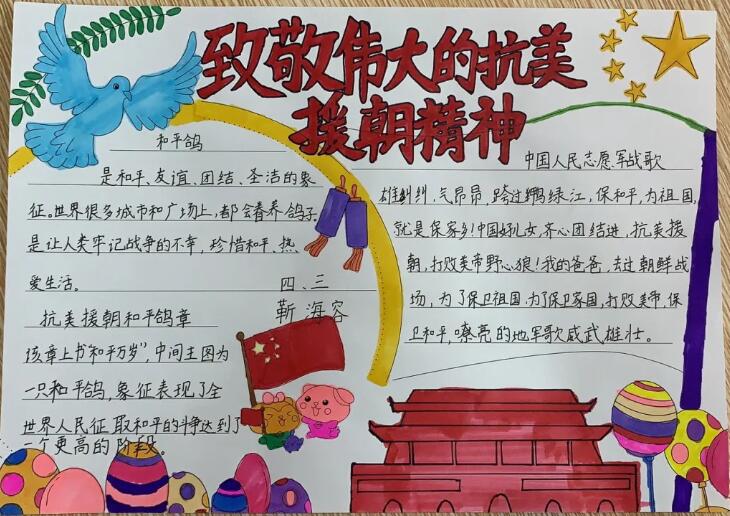 致敬伟大的抗美
援朝精神
和平鸽
是和平、友谊、团结、圣洁的象
征。世界很多城市和广场上,都会着养鸽子
是让人类牢记战争的不幸,珍惜和平、热
爱生活。
四、三
靳海容
抗美援朝和平鸽章
该章上书“和平万岁”,中间主图为
一只和平鸽,象征表现了全
世界人民征取和平的争达到了
一个更高的阶段。
中国人民志愿军战歌
雄纠纠、气昂昂,跨过鸭绿江,保和平,为祖国,
就是保家乡!中国好儿女,齐心团结进,抗美援
朝,打败美帝野心狼!我的爸爸,去过朝鲜战
场,为了保卫祖国,为了保卫家国,打败美帝,保
卫和平,嘹亮的地军歌威武雄壮。